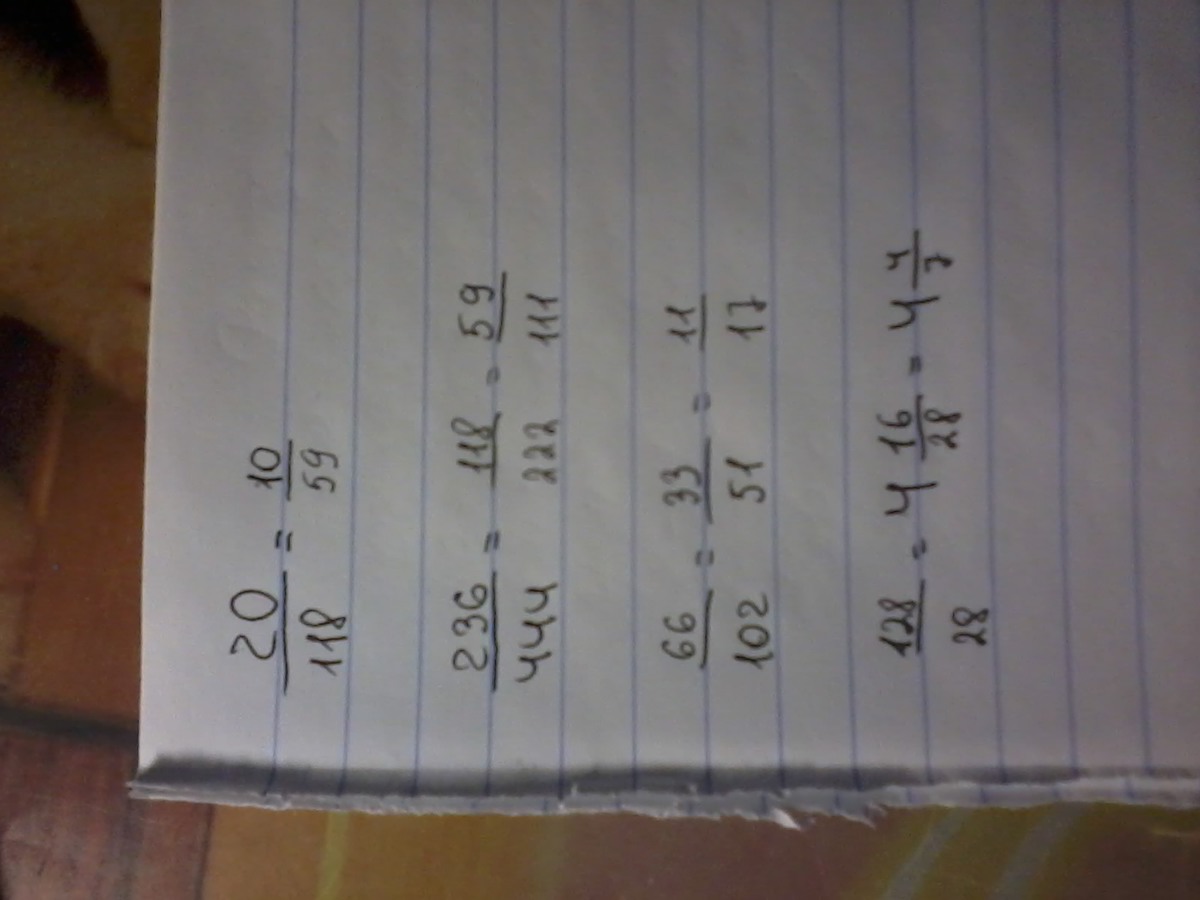 20/118 = 10/59
236/444 = 118/222 = 59/111
66/102 = 33/51 = 11/17
128/28 = 4 16/28 = 4 4/7